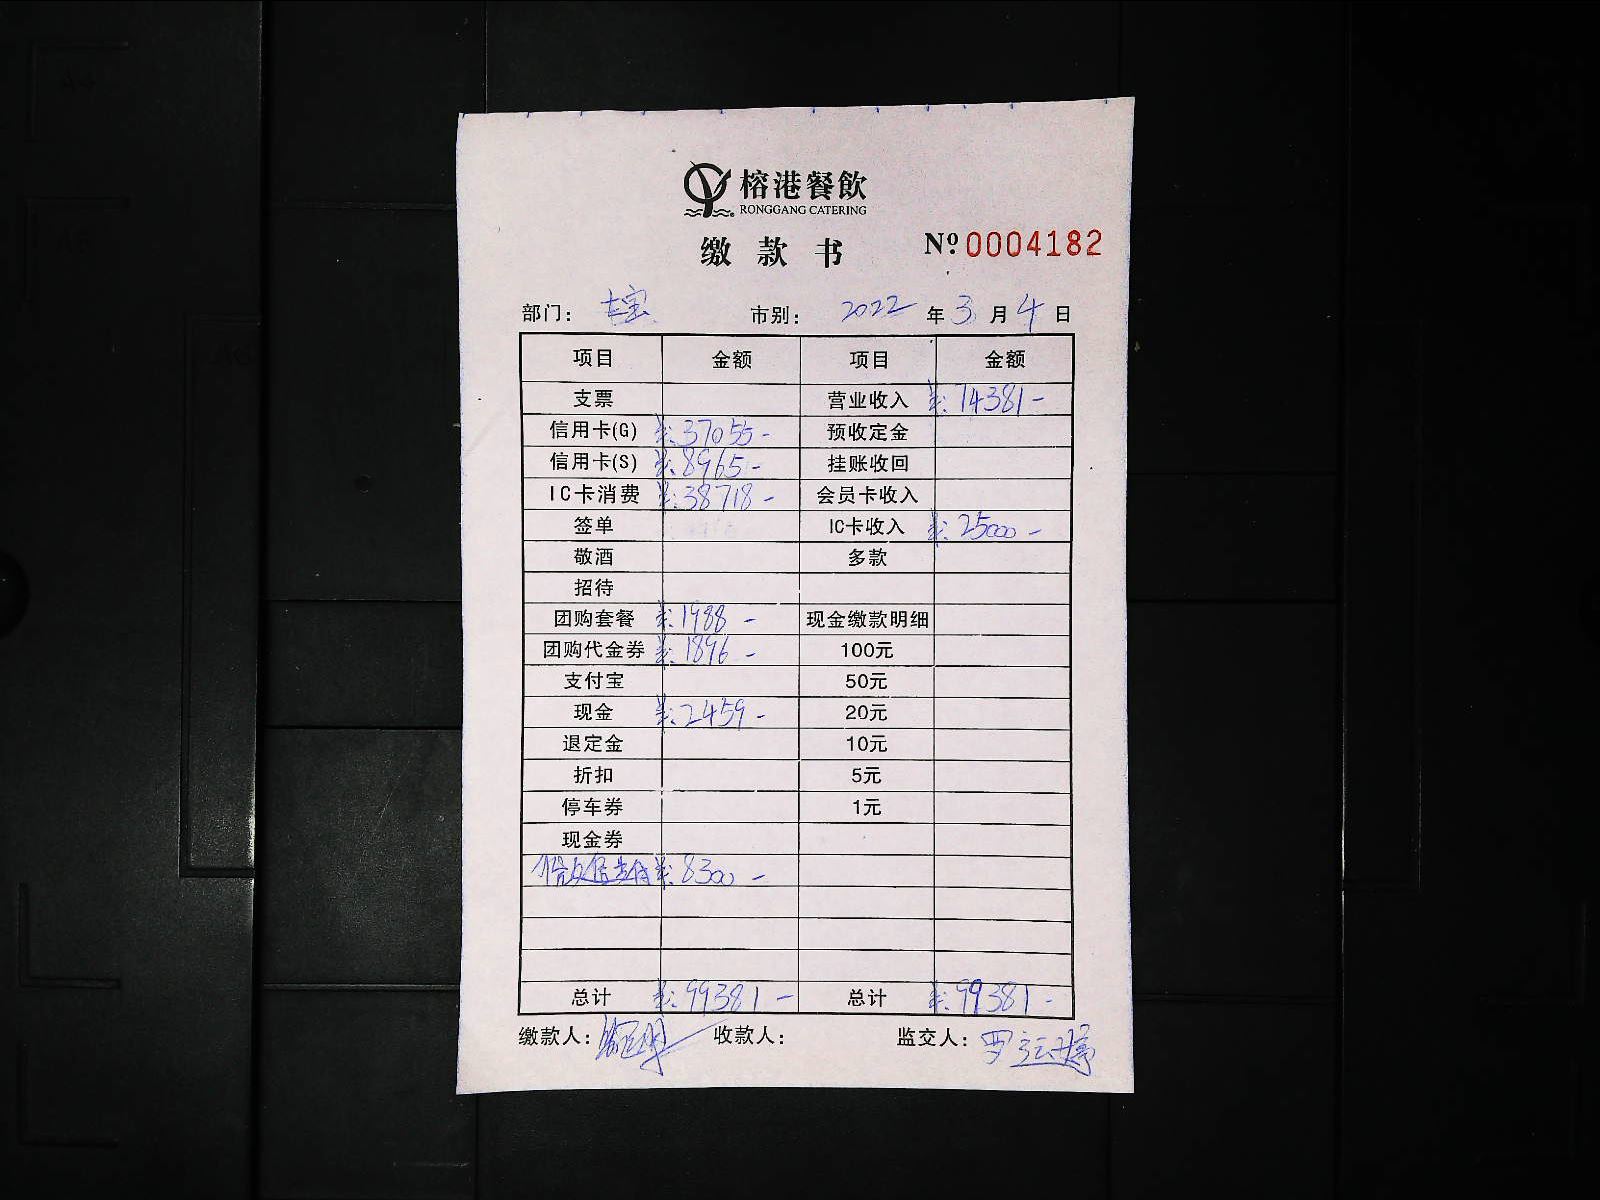 榕港餐飲
RONGGANG CATERING
缴款书 №0004182
部门： 市别： 2022年3月4日
项目 金额 项目 金额
支票 营业收入 ¥:74381-
信用卡(G) ¥:37055- 预收定金
信用卡(S) ¥:8965- 挂账收回
IC卡消费 ¥:38718- 会员卡收入
签单 IC卡收入 ¥:25000-
敬酒 多款
招待
团购套餐 ¥:1988- 现金缴款明细
团购代金券 ¥:1896- 100元
支付宝 50元
现金 ¥:2459- 20元
退定金 10元
折扣 5元
停车券 1元
现金券
¥:8300-
总计 ¥:99381- 总计 ¥:99381-
缴款人： 收款人： 监交人：罗